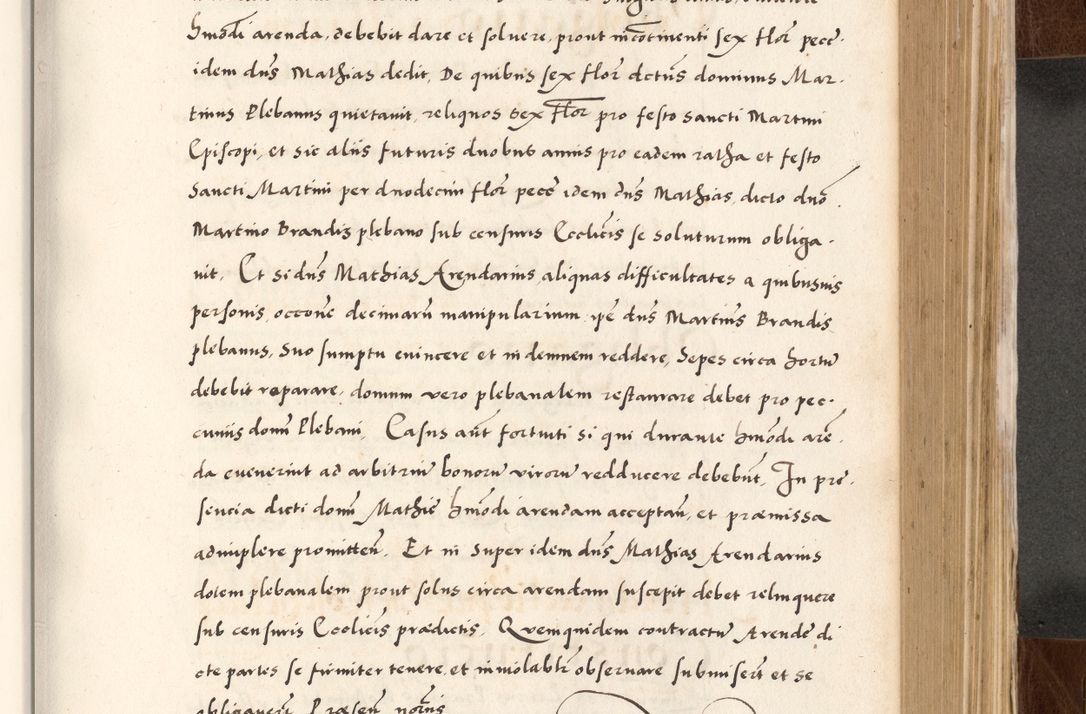 hmõdi arenda, debebit dare et soluere, prout incõtinenti sex flor̃ pecc̃.
idem dñs Mathias dedit, De quibus sex flor̃ dctũs dominus Mar-
tinus Plebanus quietauit, reliquos sex flor̃ pro festo sancti Martini
Episcopi, et sic aliis futuris duobus annis pro eadem ratha et festo
Sancti Martini per duodecim flor̃ pecc̃ idem dñs Mathias, dicto dnõ.
Martino Brandis plebano sub censuris Ecclicis se soluturum obliga-
uit, Et si dñs Mathias Arendarius, aliquas difficultates a quibusuis
personis, occone decimarũ manipularium ipẽ dñs Martinũs Brandis
plebanus, suo sumptu euincere et indemnem reddere, Sepes circa hortũ
debebit reparare, domum vero plebanalem restaurare debet pro pec-
cuniis domĩ Plebani, Casus aũt fortuiti si qui durante hmõdi arẽ-
da euenerint ad arbitriũ bonorũ virorũ redducere debebũt, In prẽ-
sencia dicti domĩ Mathiẽ hmõdi arendam acceptañ, et præmissa
adimplere promitteñ. Et in super idem dñs Mathias Arendarius
dotem plebanalem prout solus circa arendam suscepit debet relinquere
sub censuris Ecclicis prædictis, Quemquidem contractũ Arendẽ di
cte partes se firmiter tenere, et inuiolablr̃ obseruare submiserũt et se
obligauerũt Præsen̄ norñis